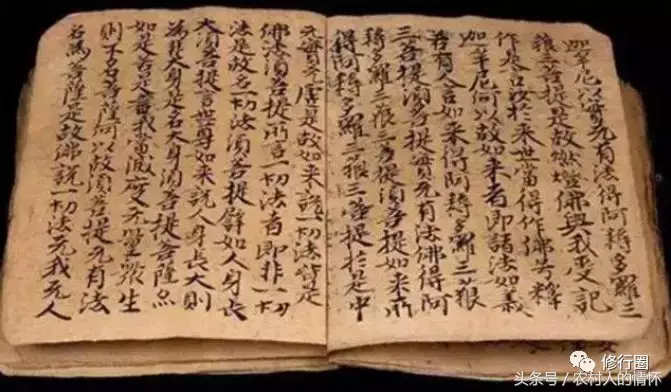 迦牟尼以實无有法得阿耨多羅三
藐三菩提是故燃燈佛與我受記
作是言汝於来世當得作佛号釋
迦牟尼何以故如来者即諸法如義
若有人言如来得阿耨多羅三藐
三菩提須菩提實无有法佛得阿
耨多羅三藐三菩提須菩提如来所
得阿耨多羅三藐三菩提於是中
无實无虛是故如来說一切法皆是
佛法須菩提所言一切法者即非一切
法是故名一切法須菩提譬如人身長
大須菩提言世尊如来說人身長大則
為非大身是名大身須菩提菩薩亦
如是若是言我當滅度无量眾生
則不名菩薩何以故須菩提无有法
名為菩薩是故佛說一切法无我无人
修行圈
头条号 / 农村人的情怀